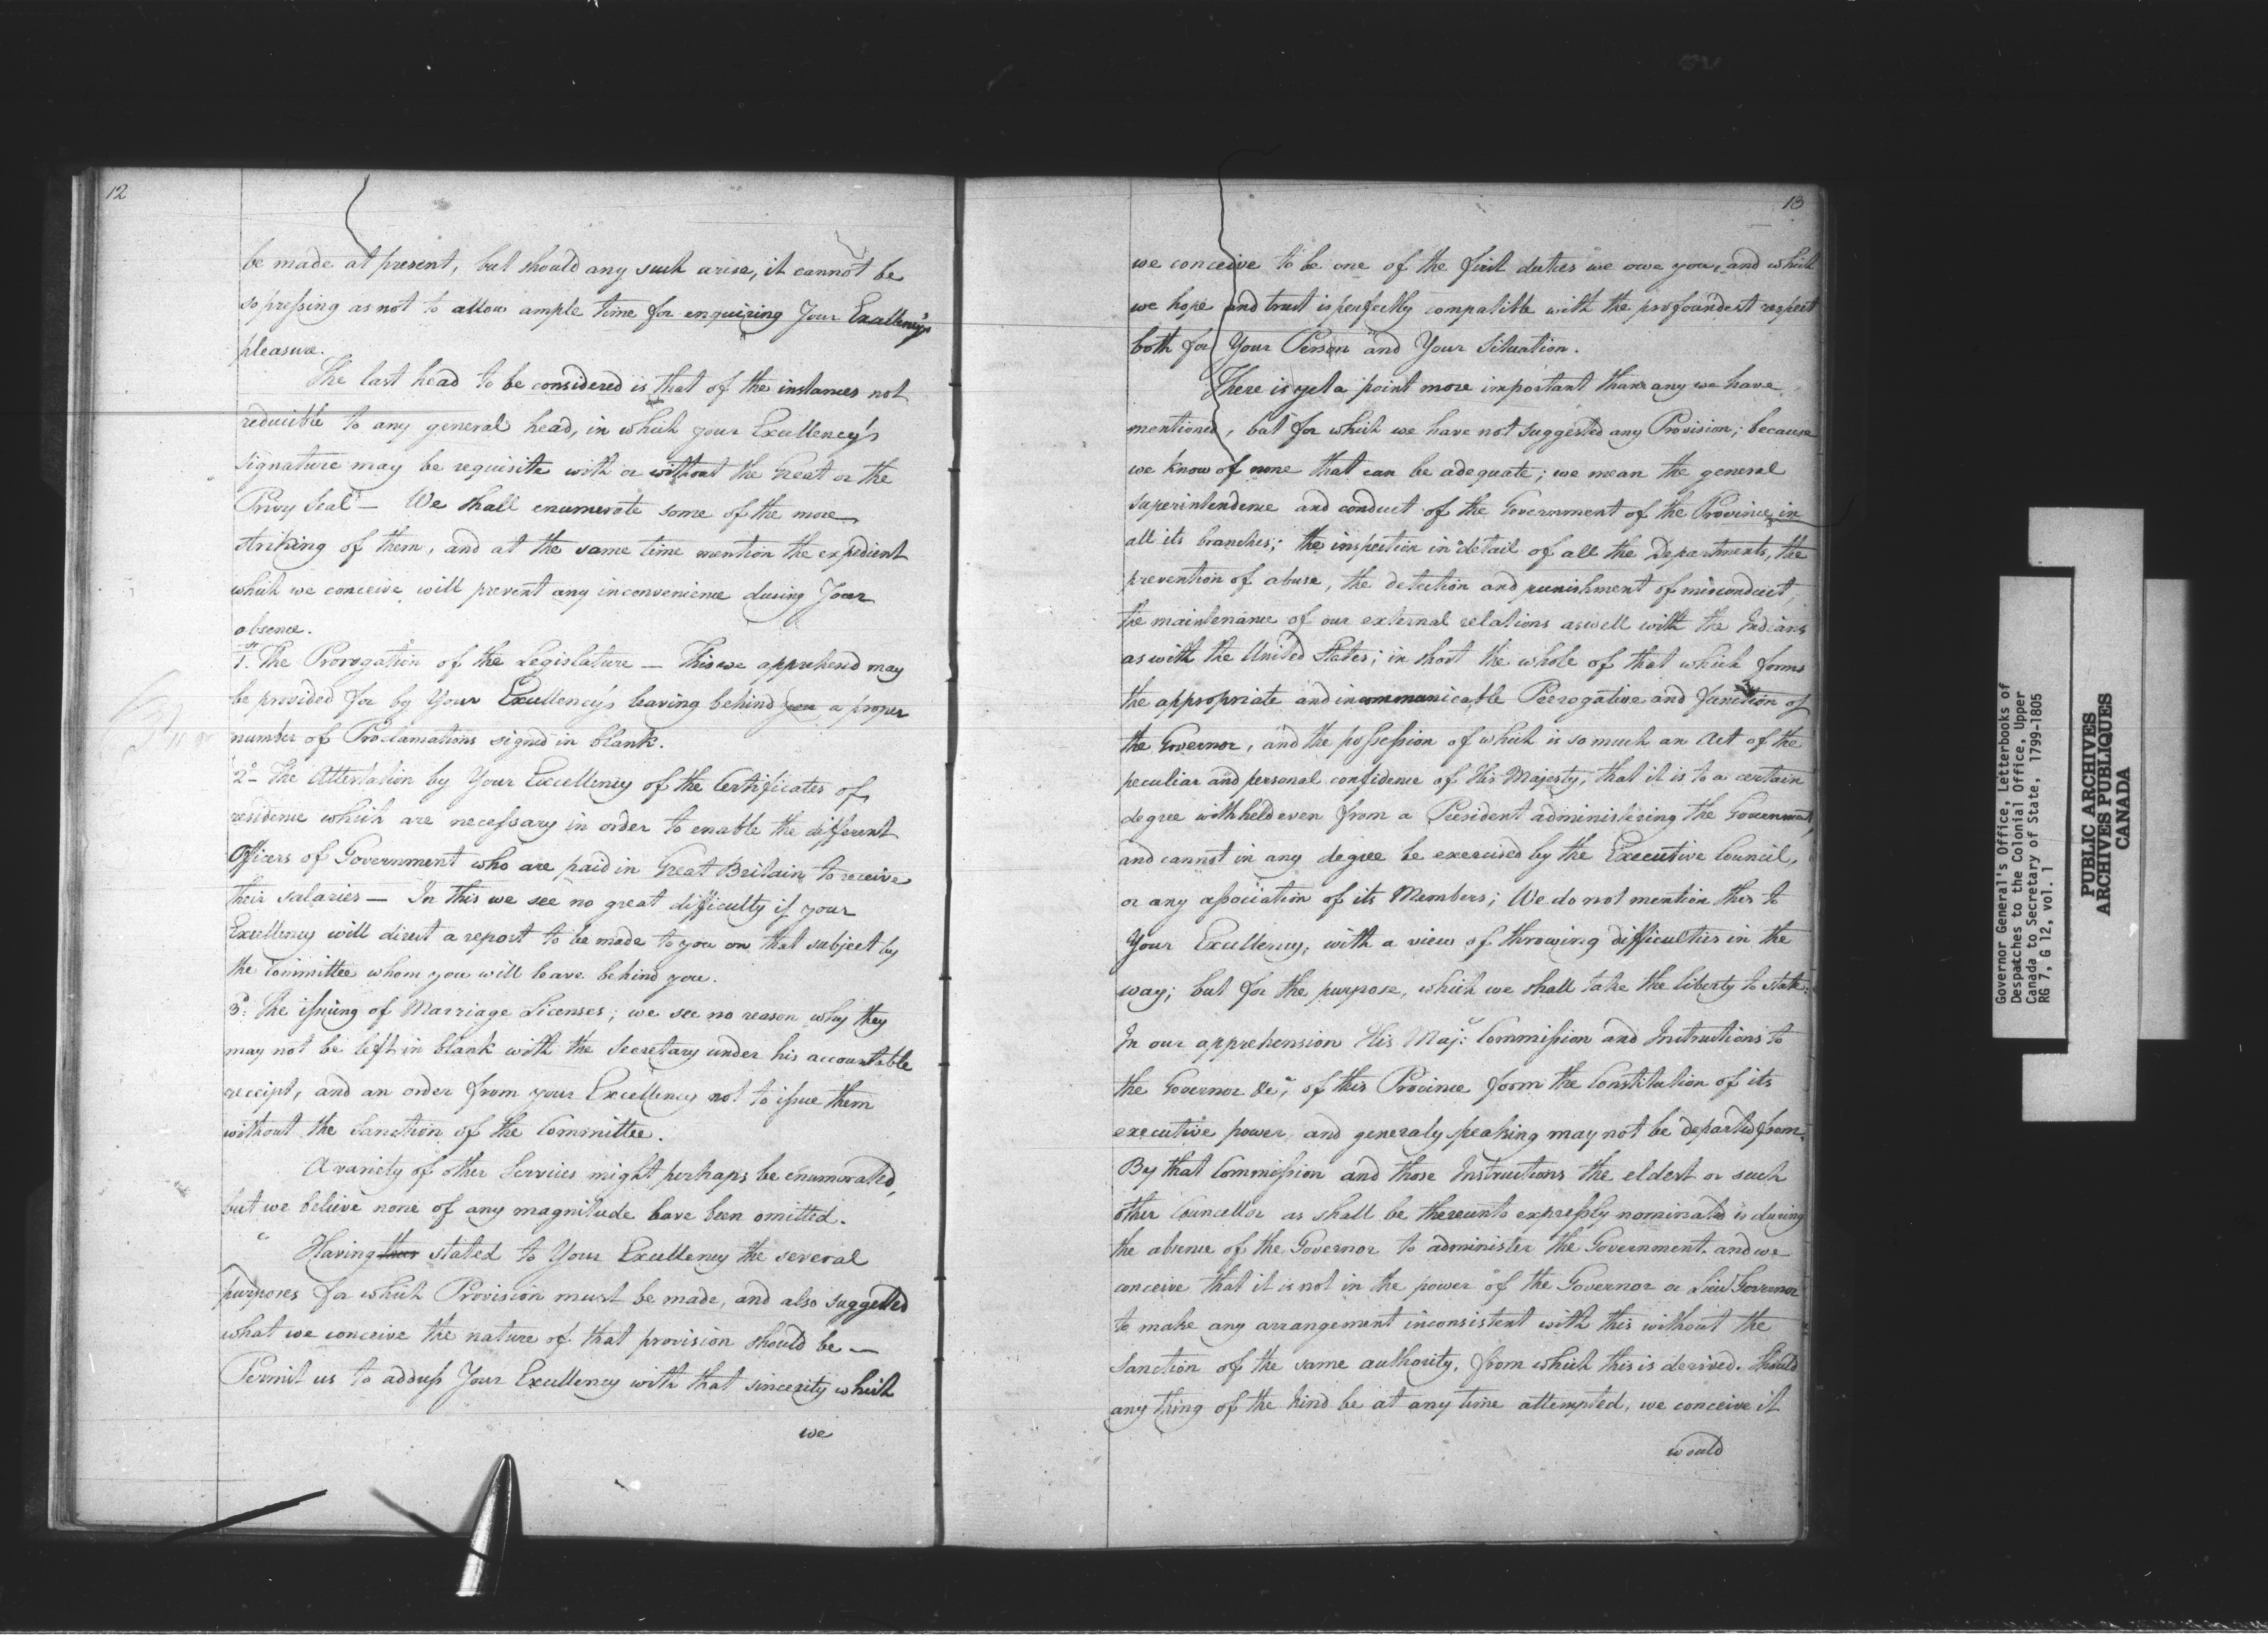 12
be made at present, but should any such arise, it cannot be
so pressing as not to allow ample time for enquiring Your Excellency's
pleasure.
The last head to be considered is that of the instances not
reducible to any general head, in which your Excellency's
signature may be requisite with or without the Great or the
Privy Seal — We shall enumerate some of the more
striking of them, and at the same time mention the expedient
which we conceive will prevent any inconvenience during Your
absence.
1st The Prorogation of the Legislature — This we apprehend may
be provided for by Your Excellency's leaving behind you a proper
number of Proclamations signed in blank.
2o The Attestation by Your Excellency of the Certificates of
residence which are necessary in order to enable the different
Officers of Government who are paid in Great Britain to receive
their salaries — In this we see no great difficulty if your
Excellency will direct a report to be made to you on that subject by
the Committee whom you will leave behind you.
3o The issuing of Marriage Licenses; we see no reason why they
may not be left in blank with the Secretary under his accountable
receipt, and an order from your Excellency not to issue them
without the Sanction of the Committee.
A variety of other Services might perhaps be enumerated,
but we believe none of any magnitude have been omitted.
Having thus stated to Your Excellency the several
purposes for which Provision must be made, and also suggested
what we conceive the nature of that provision should be —
Permit us to address Your Excellency with that sincerity which
we
13
we conceive to be one of the first duties we owe you, and which
we hope and trust is perfectly compatible with the profoundest respect
both for Your Person and Your Situation.
There is yet a point more important than any we have
mentioned, but for which we have not suggested any Provision; because
we know of none that can be adequate; we mean the general
superintendence and conduct of the Government of the Province in
all its branches; the inspection in detail of all the Departments, the
prevention of abuse, the detection and punishment of misconduct;
the maintenance of our external relations aswell with the Indians
as with the United States; in short the whole of that which forms
the appropriate and incommunicable Prerogative and Function of
the Governor, and the possession of which is so much an Act of the
peculiar and personal confidence of His Majesty, that it is to a certain
degree withheld even from a President administering the Government,
and cannot in any degree be exercised by the Executive Council,
or any association of its Members; We do not mention this to
Your Excellency, with a view of throwing difficulties in the
way; but for the purpose, which we shall take the liberty to state:
In our apprehension His Maj:'s Commission and Instructions to
the Governor &ca, of this Province form the Constitution of its
executive power, and generaly speaking may not be departed from.
By that Commission and those Instructions the eldest or such
other Councellor as shall be thereunto expressly nominated is during
the absence of the Governor to administer the Government. and we
conceive that it is not in the power of the Governor or Lieut Governor
to make any arrangement inconsistent with this without the
Sanction of the same authority, from which this is derived. Should
any thing of the kind be at any time attempted, we conceive it
would
Governor General's Office, Letterbooks of
Despatches to the Colonial Office, Upper
Canada to Secretary of State, 1799-1805
RG 7, G 12, vol. 1
PUBLIC ARCHIVES
ARCHIVES PUBLIQUES
CANADA